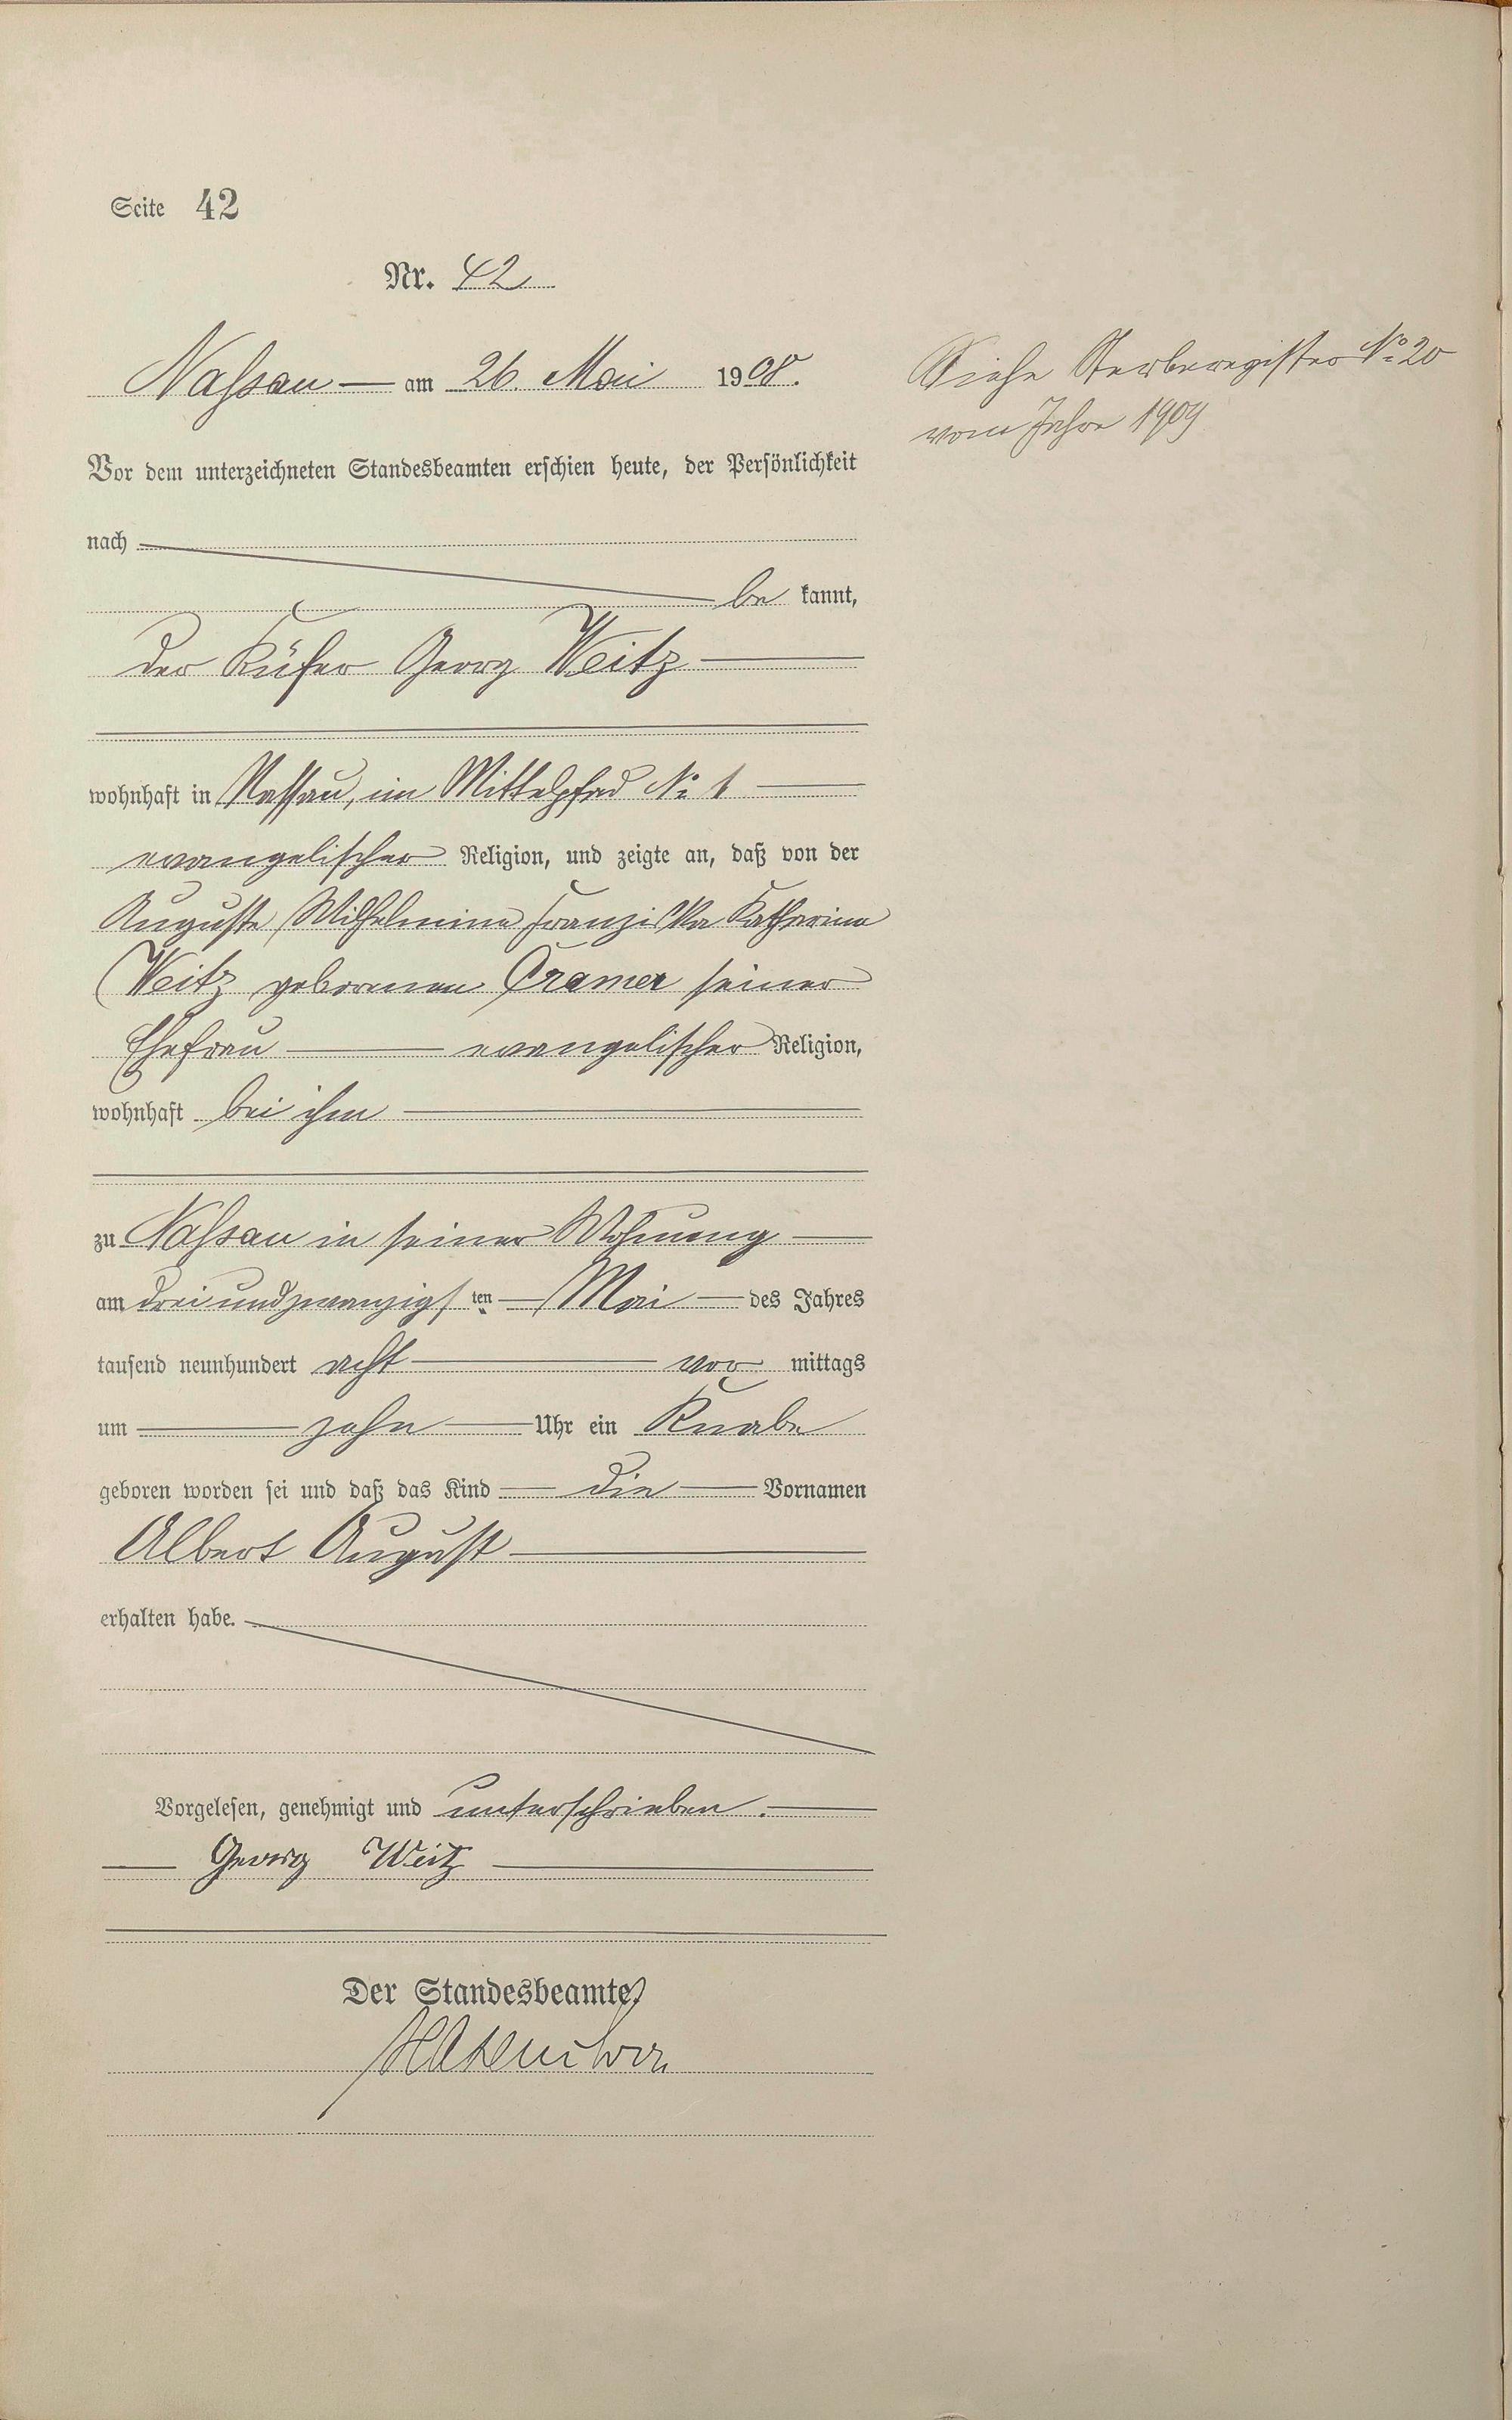 Seite 42
Nr. 42
Nassau — am 26. Mai 1908.
Siehe Sterberegister No 20
vom Jahre 1909
Vor dem unterzeichneten Standesbeamten erschien heute, der Persönlichkeit
nach
be kannt,
der Küfer Georg Weitz
wohnhaft in Nassau, im Mittelpfad No 1
evangelischer Religion, und zeigte an, daß von der
Auguste Wilhelmine Franziska Katharina
Weitz geborenen Cramer seiner
Ehefrau evangelischer Religion,
wohnhaft bei ihm
zu Nassau in seiner Wohnung
am dreiundzwanzigsten Mai des Jahres
tausend neunhundert acht vor mittags
um zehn Uhr ein Knabe
geboren worden sei und daß das Kind die Vornamen
Albert August
erhalten habe.
Vorgelesen, genehmigt und unterschrieben.
Georg Weitz
Der Standesbeamte